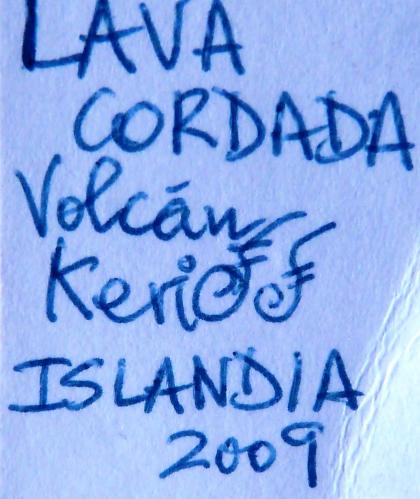 LAVA
CORDADA
Volcán
ISLANDIA
2009